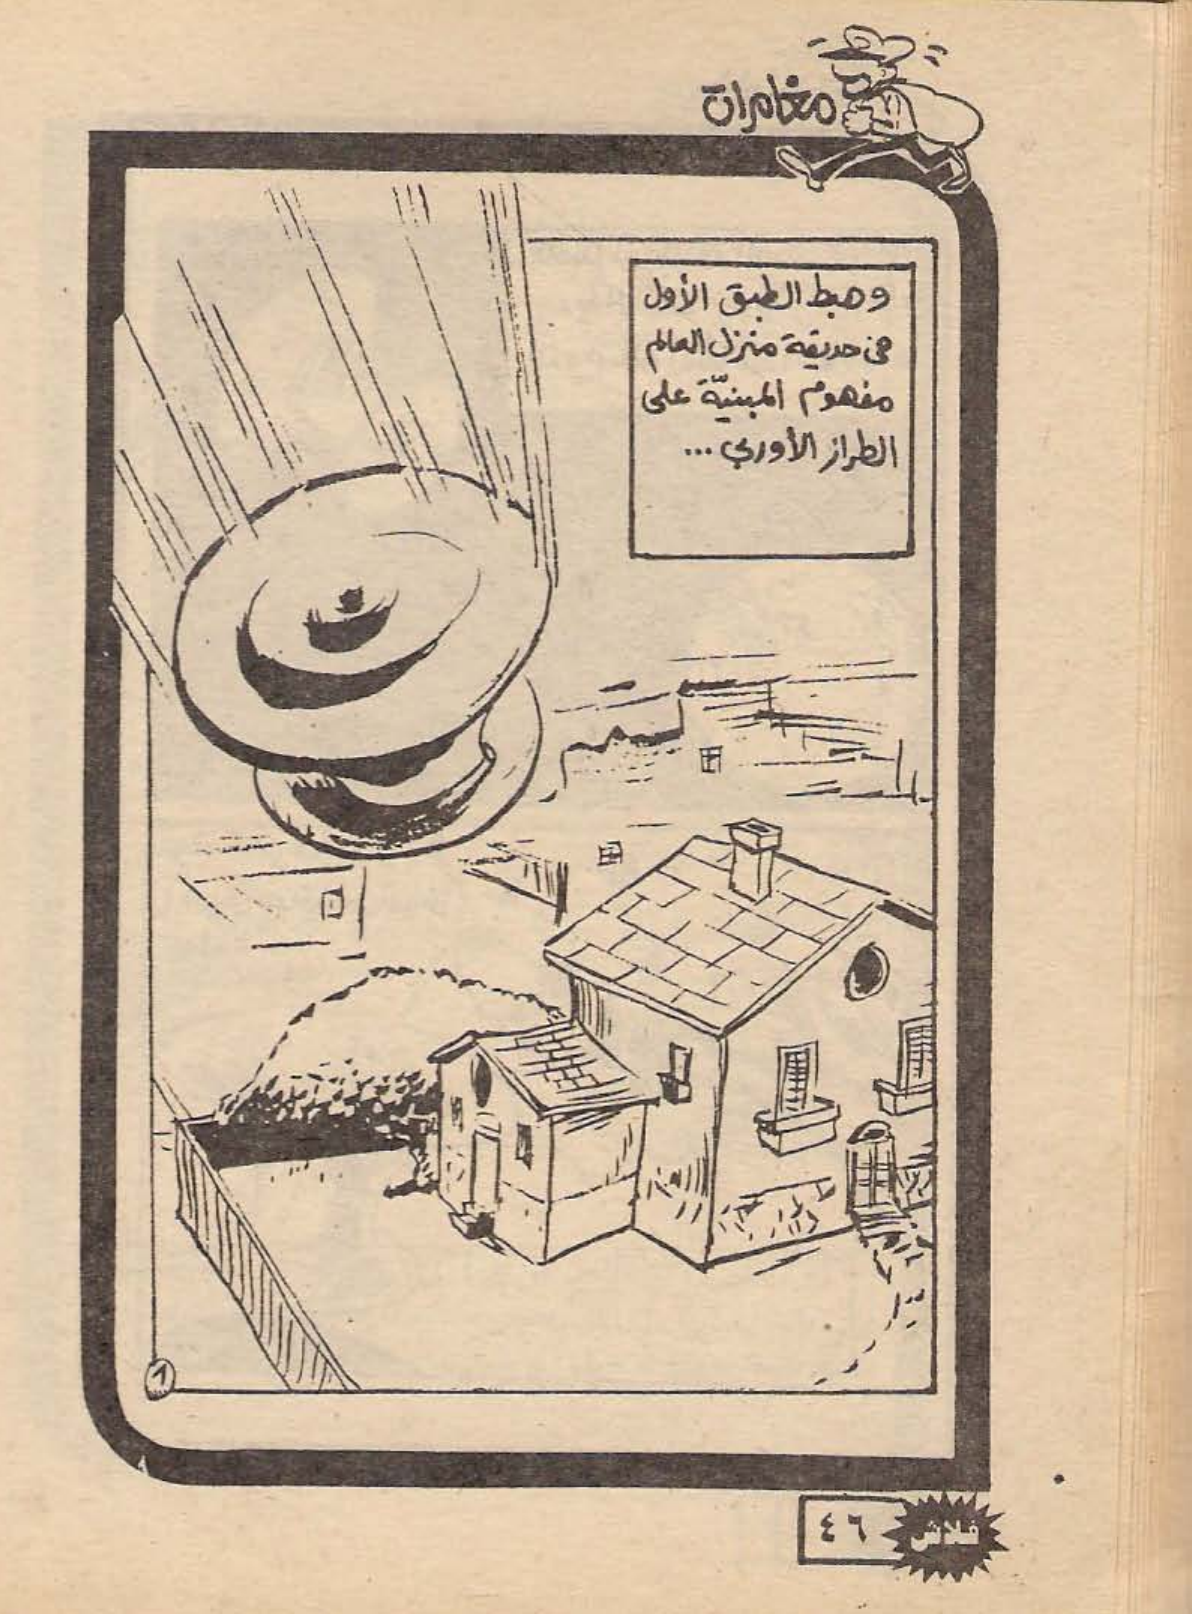 مغامرات
وهبط الطبق الأول
فى حديقة منزل العالم
مفهوم المبنيّة على
الطراز الأوربي ...
1
٤٦
فلاش